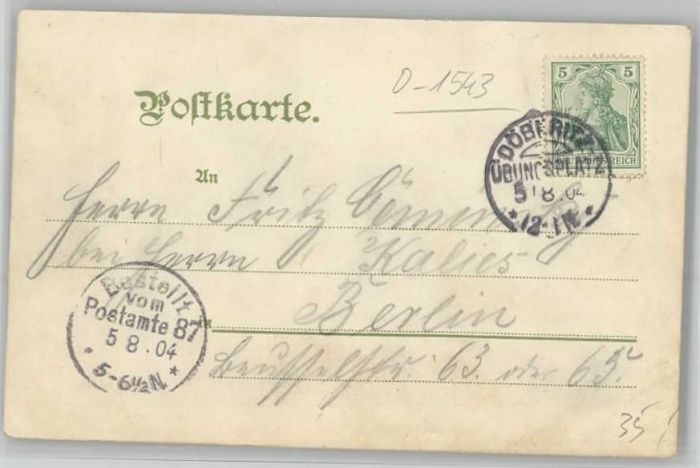 D-1543
Postkarte.
5 5
DEUTSCHES REICH
DÖBERITZ
ÜBUNGSPLATZ
5 8.04
* 12-1N. *
An
Herrn Fritz
bei Herrn Kalies
Berlin
in
Beusselstr. 63. oder 65.
Bestellt
vom
Postamte 87
5 8.04
* 5-6½N. *
35